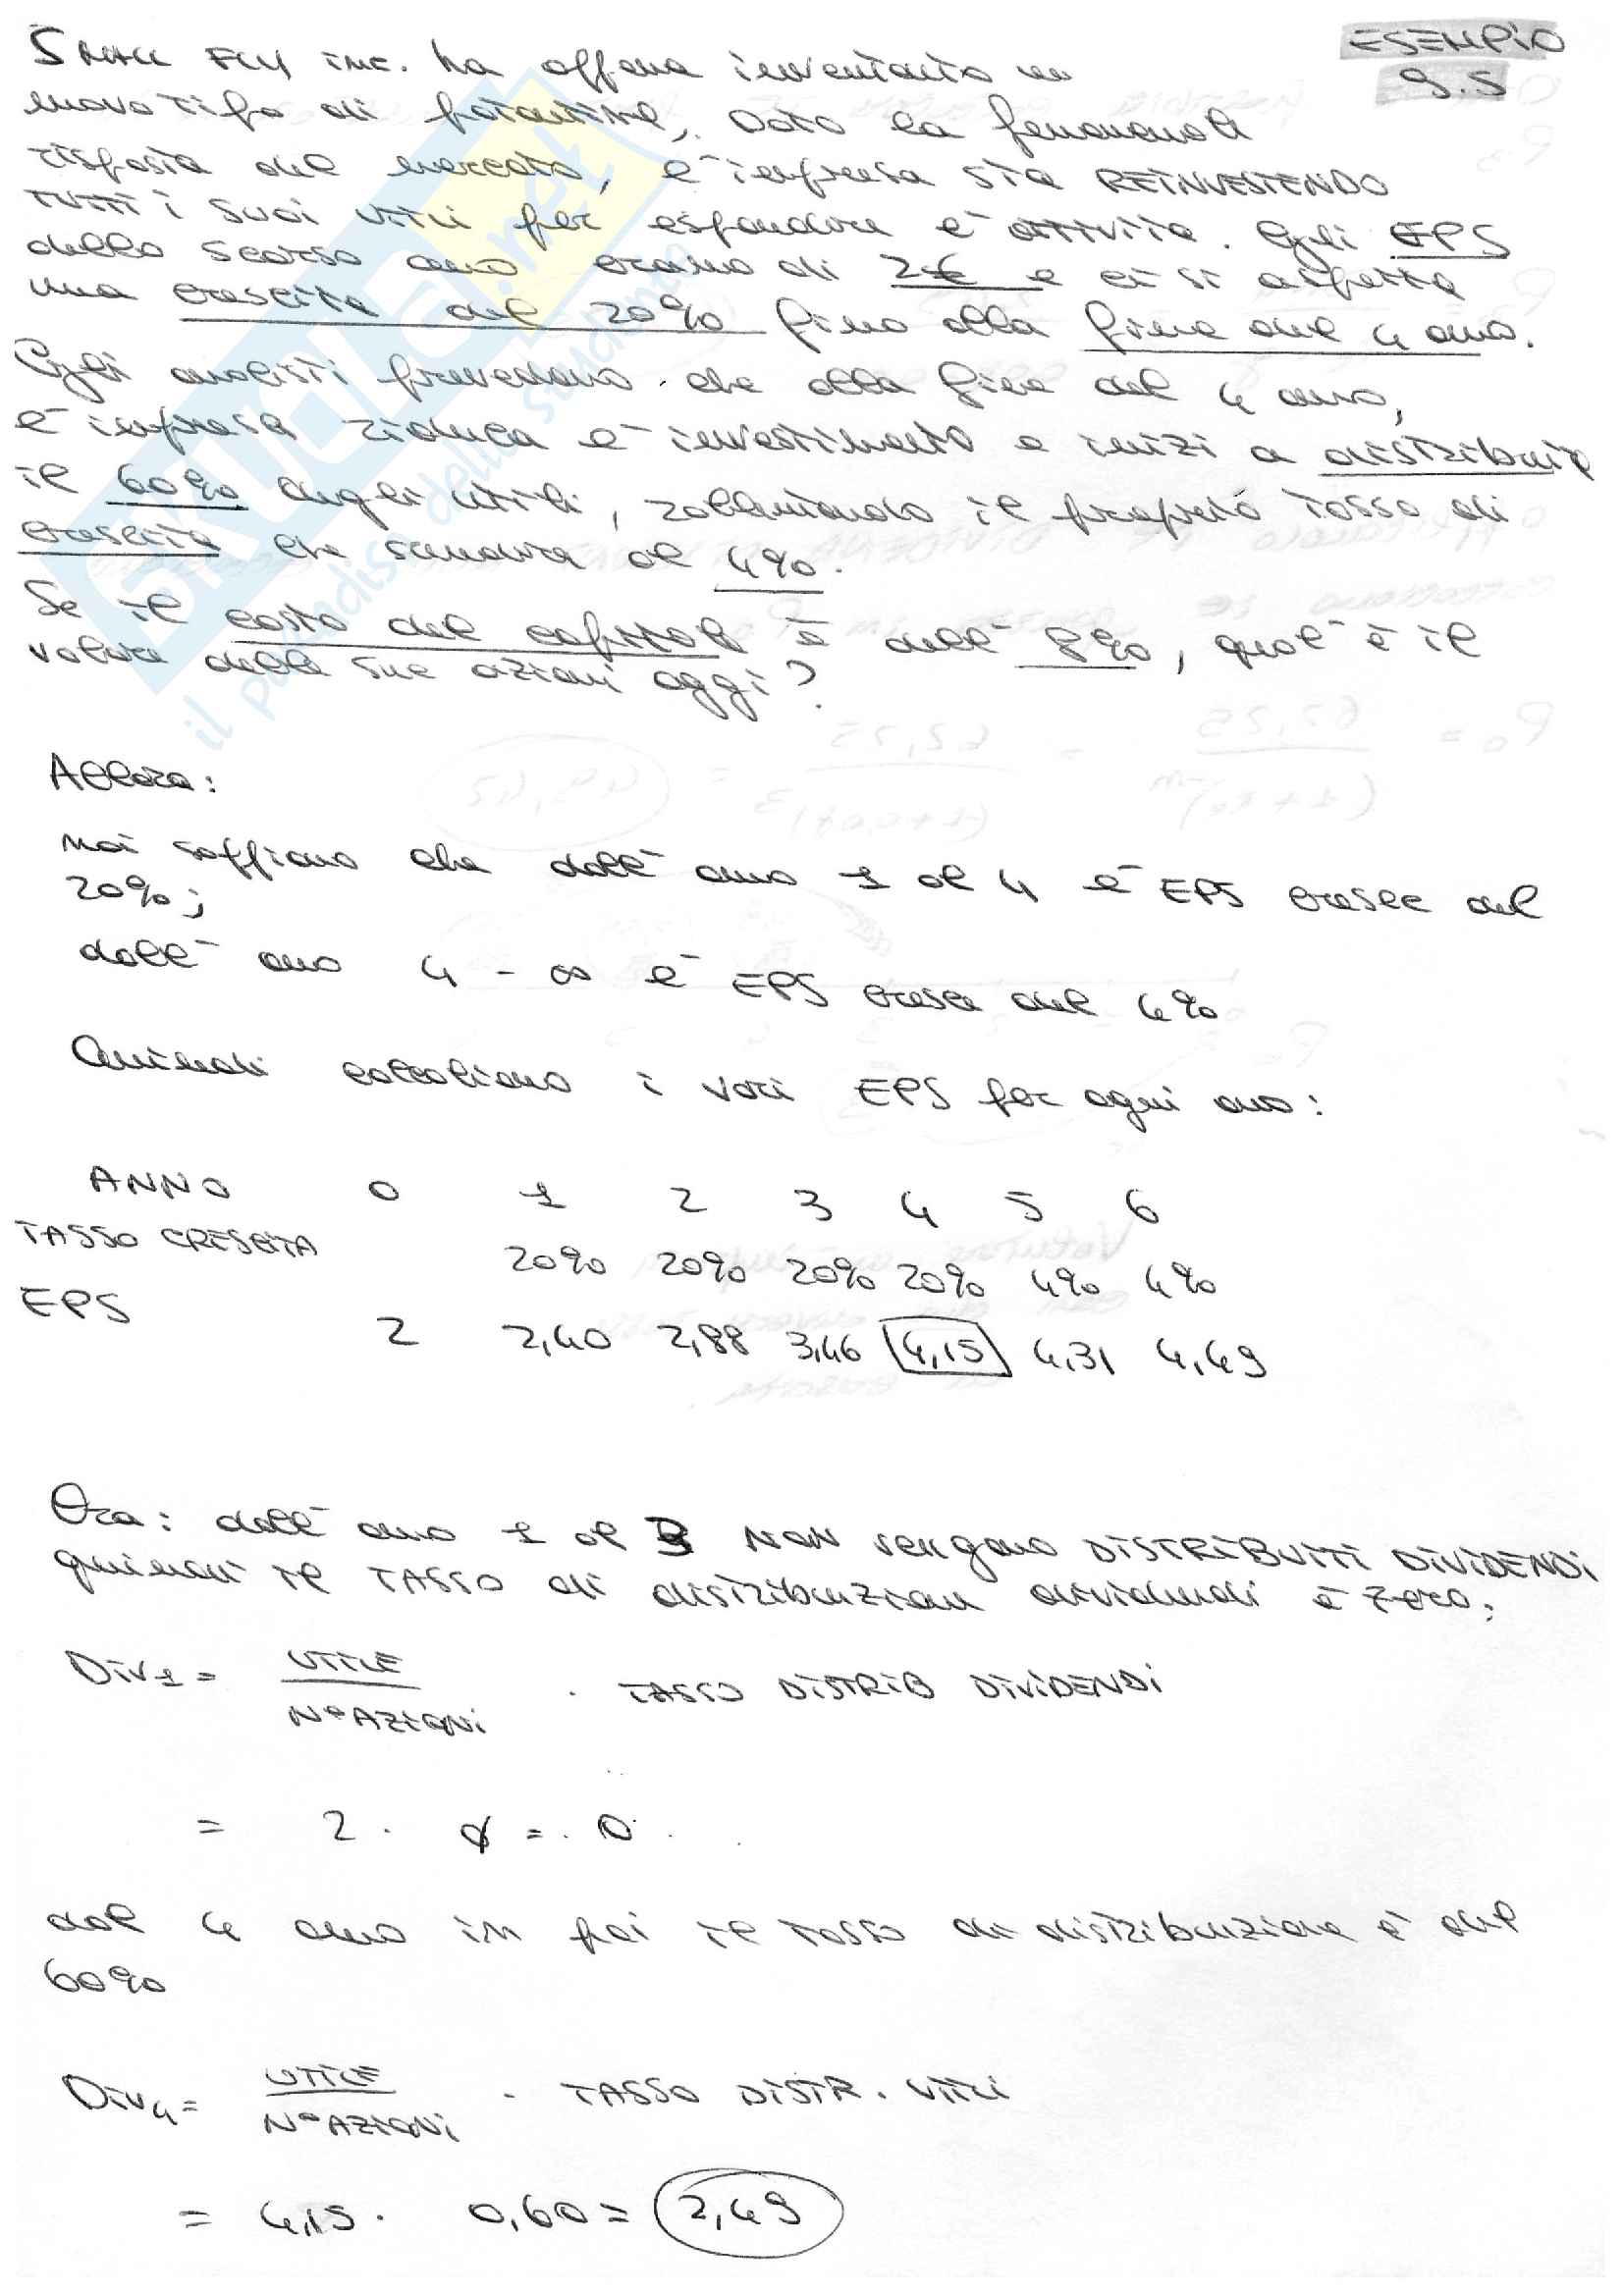 ESEMPIO
9.5
SMALL FRY inc. ha appena inventato un
nuovo tipo di patatine. Dato la fenomenale
risposta del mercato, l'impresa sta REINVESTENDO
TUTTI i suoi utili per espandere l'attività. Gli EPS
dello scorso anno erano di 2€ e ci si aspetta
una crescita del 20% fino alla fine del 4 anno.
Gli analisti prevedono che alla fine del 4 anno,
l'impresa riduca l'investimento e inizi a distribuire
il 60% degli utili, rallentando il proprio tasso di
crescita che scenderà al 4%.
Se il costo del capitale è dell' 8%, qual'è il
valore delle sue azioni oggi?
Allora:
noi sappiamo che dall' anno 1 al 4 l' EPS cresce del
20%;
dall' anno 4 - ∞ l' EPS cresce del 4%
Quindi calcoliamo i vari EPS per ogni anno:
ANNO 0 1 2 3 4 5 6
TASSO CRESCITA 20% 20% 20% 20% 4% 4%
EPS 2 2,40 2,88 3,46 4,15 4,31 4,49
Ora: dall' anno 1 al 3 NON vengono DISTRIBUITI DIVIDENDI
quindi il TASSO di distribuzione dividendi è zero.
Div1 = UTILE
N°AZIONI · TASSO DISTRIB DIVIDENDI
= 2 · 0 = 0
dal 4 anno in poi il tasso di distribuzione è del
60%
Div4 = UTILE
N°AZIONI · TASSO DISTR. UTILI
= 4,15 · 0,60 = 2,49
SKUOLA.net
il paradiso dello studente